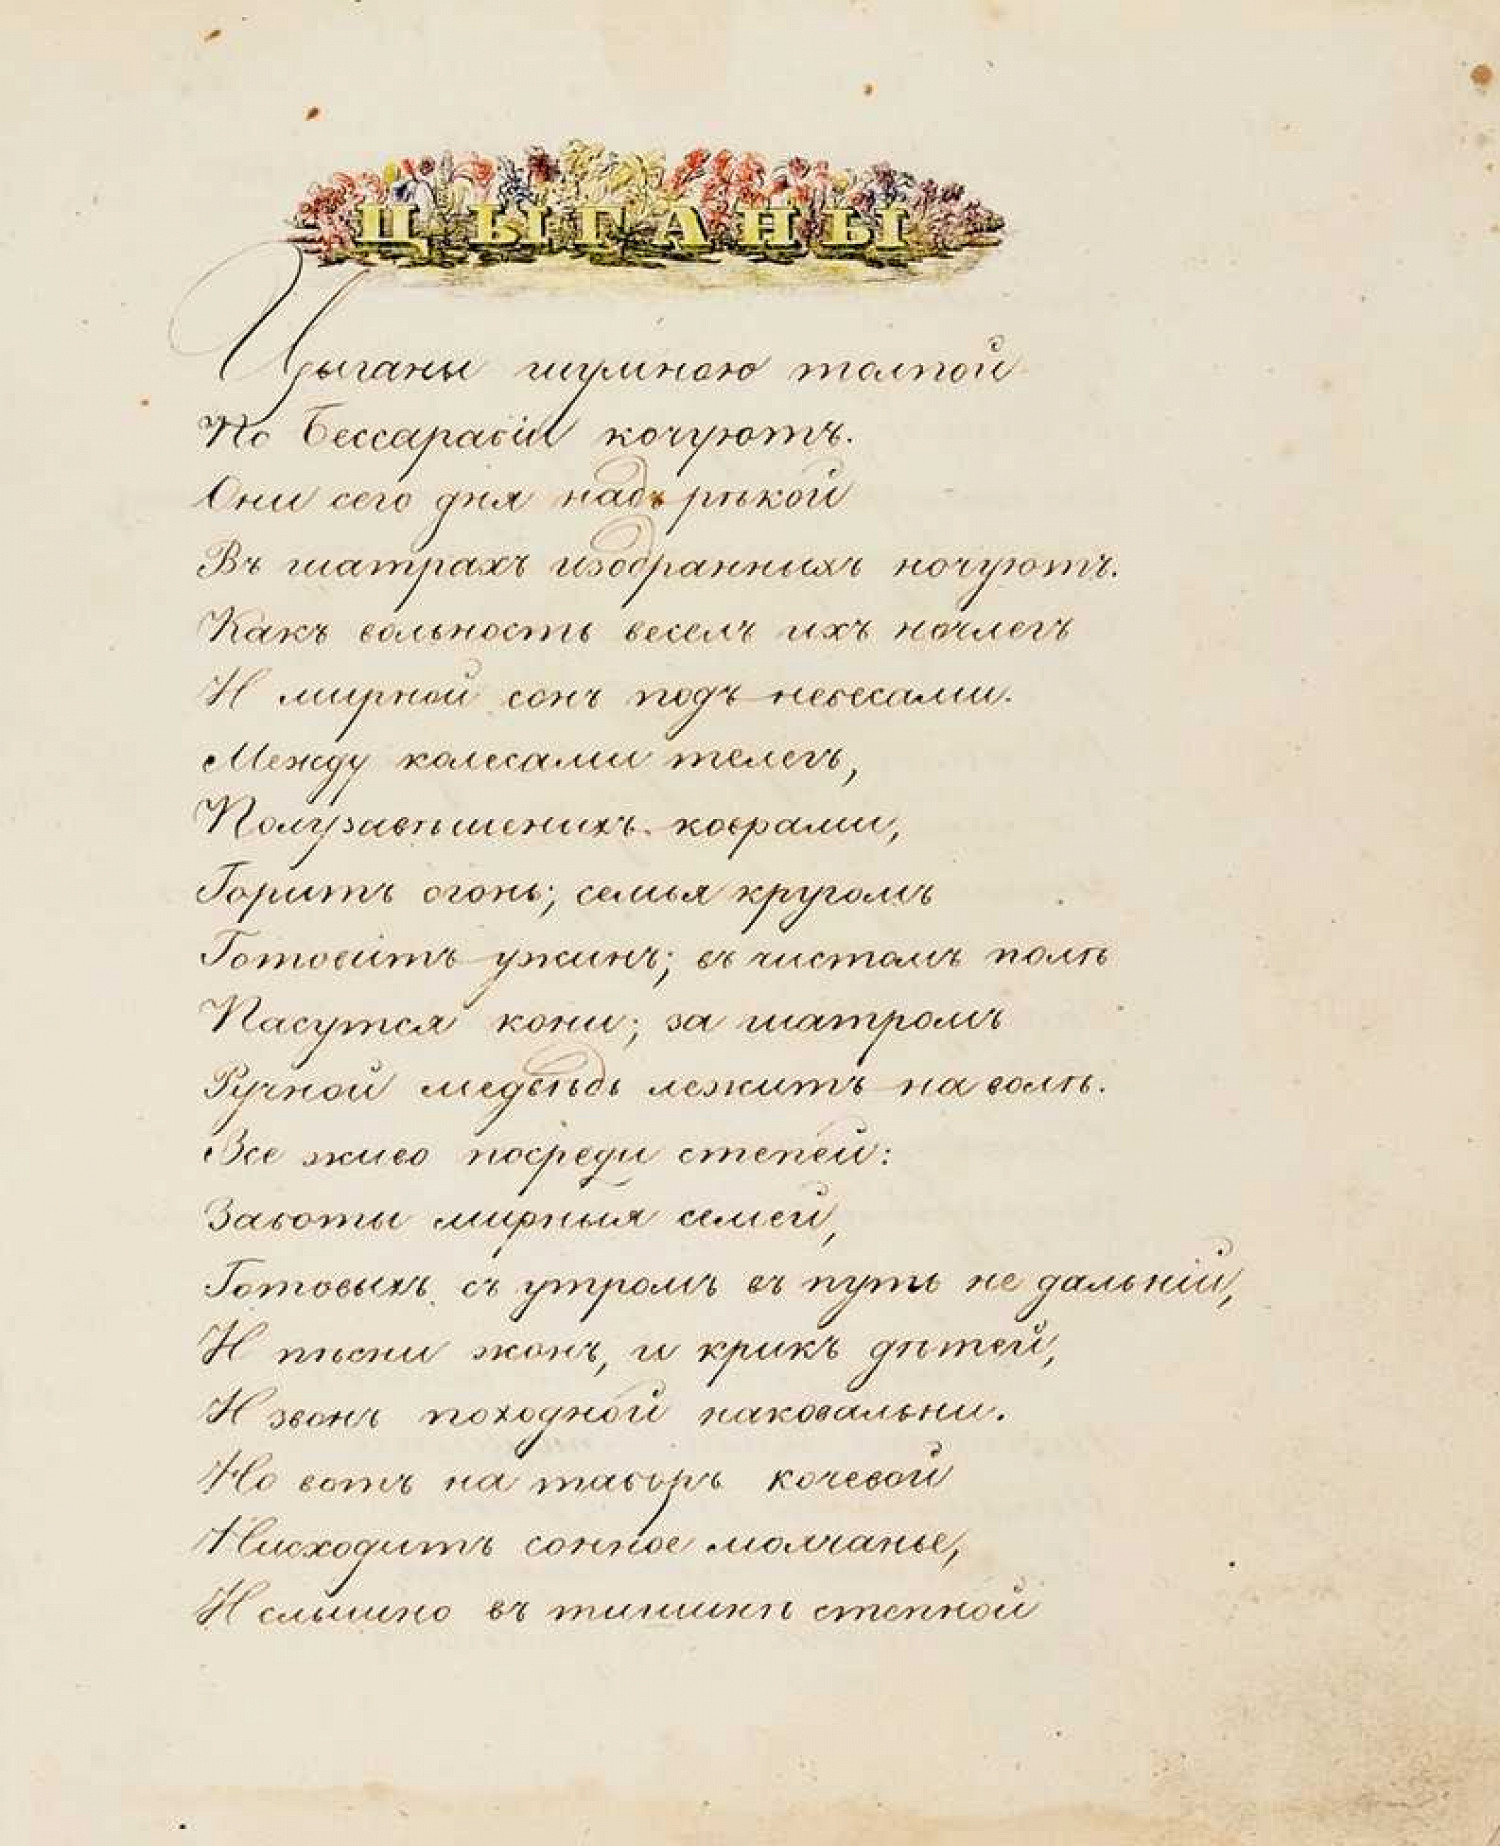 ЦЫГАНЫ
Цыганы шумною толпой
По Бессарабіи кочуютъ.
Они сего дня надъ рѣкой
Въ шатрахъ изодранныхъ ночуютъ.
Какъ вольность веселъ ихъ ночлегъ
И мирной сонъ подъ небесами.
Между колесами телегъ,
Полузавѣшеныхъ коврами,
Горитъ огонь; семья кругомъ
Готовитъ ужинъ; въ чистомъ полѣ
Пасутся кони; за шатромъ
Ручной медвѣдь лежитъ на волѣ.
Все живо посреди степей:
Заботы мирныя семей,
Готовыхъ съ утромъ въ путь не дальній,
И пѣсни жонъ, и крикъ дѣтей,
И звонъ походной наковальни.
Но вотъ на таборъ кочевой
Нисходитъ сонное молчанье,
И слышно въ тишинѣ степной